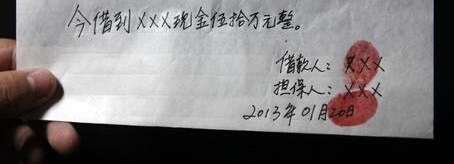 今借到XXX现金伍拾万元整。
借款人：XXX
担保人：XXX
2013年01月20日